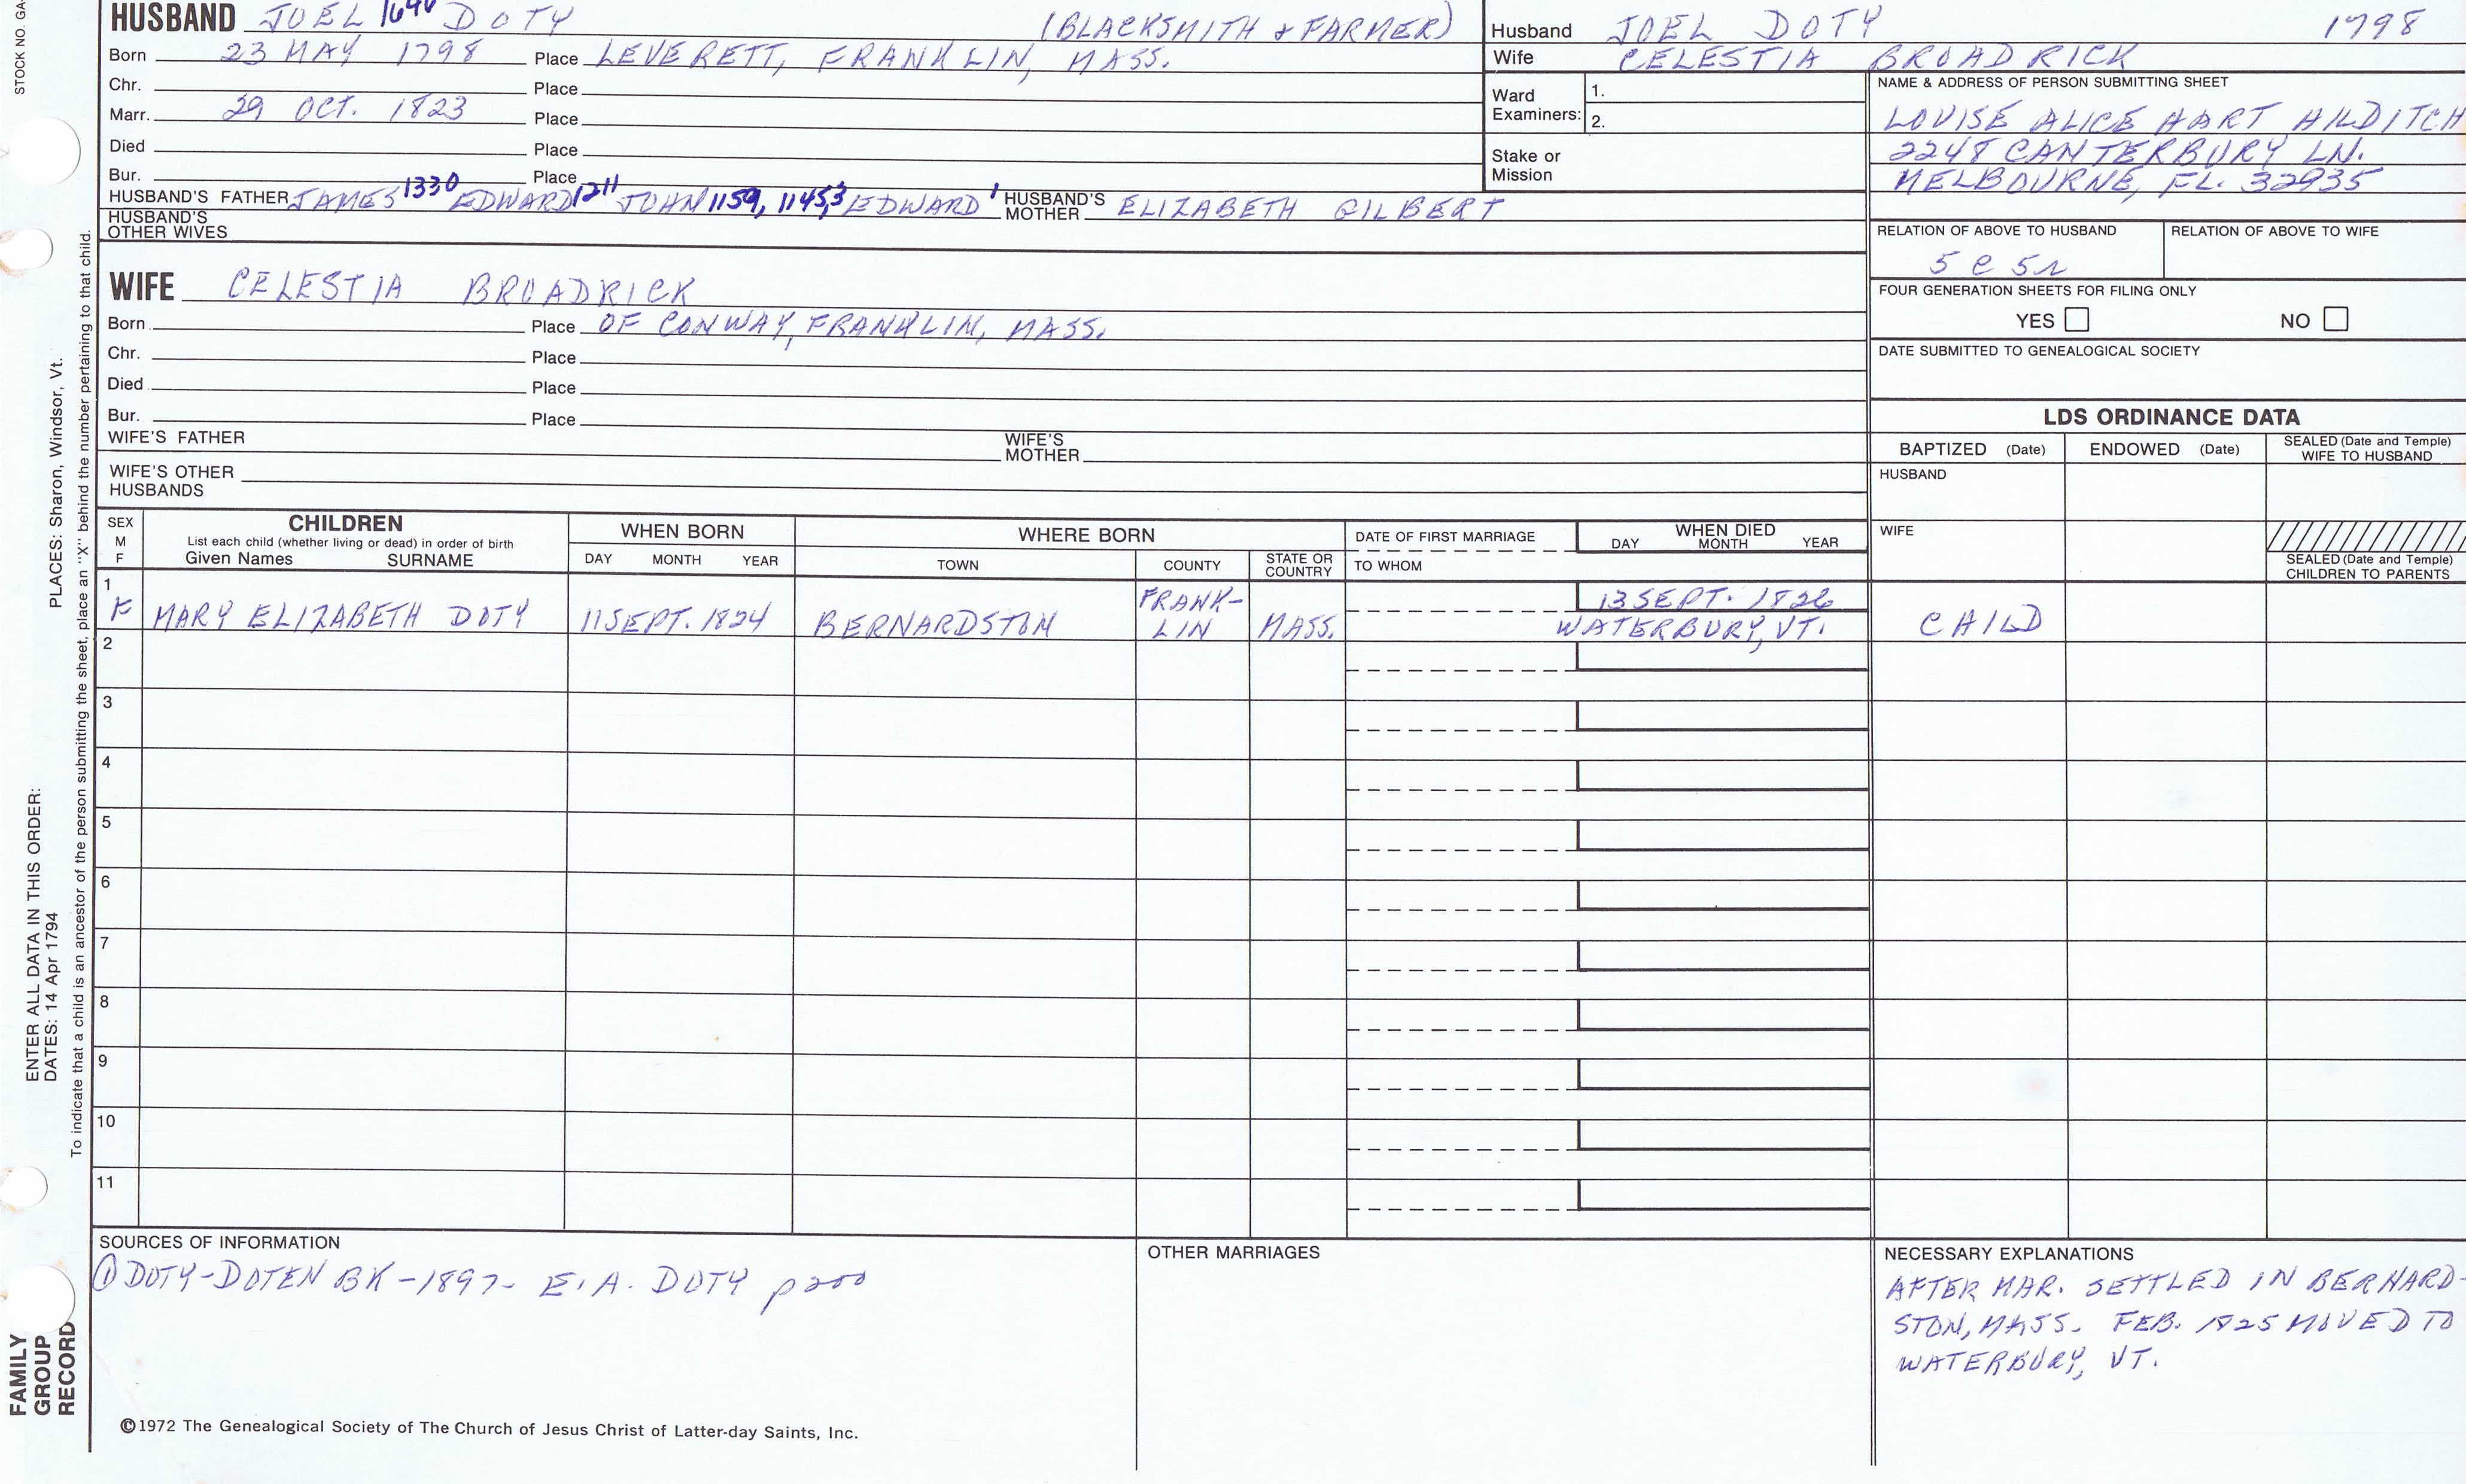 STOCK NO. GA-
HUSBAND JOEL DOTY (BLACKSMITH & FARMER)
Born 23 MAY 1798 Place LEVERETT, FRANKLIN, MASS.
Chr. Place
Marr. 29 OCT. 1823 Place
Died Place
Bur. Place
HUSBAND'S FATHER JAMES 1330 EDWARD 1211 JOHN 1159, 1145,3 EDWARD 1 HUSBAND'S MOTHER ELIZABETH GILBERT
HUSBAND'S OTHER WIVES
WIFE CELESTIA BROADRICK
Born Place OF CONWAY, FRANKLIN, MASS.
Chr. Place
Died Place
Bur. Place
WIFE'S FATHER WIFE'S MOTHER
WIFE'S OTHER HUSBANDS
Husband JOEL DOTY 1798
Wife CELESTIA BROADRICK
Ward Examiners: 1.
2.
Stake or Mission
NAME & ADDRESS OF PERSON SUBMITTING SHEET
LOUISE ALICE HART HILDITCH
2248 CANTERBURY LN.
MELBOURNE, FL. 32935
RELATION OF ABOVE TO HUSBAND RELATION OF ABOVE TO WIFE
5 C 5 r
FOUR GENERATION SHEETS FOR FILING ONLY
YES NO
DATE SUBMITTED TO GENEALOGICAL SOCIETY
LDS ORDINANCE DATA
BAPTIZED (Date) ENDOWED (Date) SEALED (Date and Temple) WIFE TO HUSBAND
HUSBAND
WIFE
SEALED (Date and Temple) CHILDREN TO PARENTS
SEX M F
CHILDREN
List each child (whether living or dead) in order of birth
Given Names SURNAME
WHEN BORN
DAY MONTH YEAR
WHERE BORN
TOWN COUNTY STATE OR COUNTRY
DATE OF FIRST MARRIAGE
TO WHOM
WHEN DIED
DAY MONTH YEAR
1
F MARY ELIZABETH DOTY 11 SEPT. 1824 BERNARDSTON FRANK-LIN MASS. 13 SEPT. 1826 WATERBURY, VT. CHILD
2
3
4
5
6
7
8
9
10
11
SOURCES OF INFORMATION
① DOTY-DOTEN BK - 1897 - E. A. DOTY p 200
OTHER MARRIAGES
NECESSARY EXPLANATIONS
AFTER MAR. SETTLED IN BERNARD-
STON, MASS. FEB. 1825 MOVED TO
WATERBURY, VT.
©1972 The Genealogical Society of The Church of Jesus Christ of Latter-day Saints, Inc.
FAMILY
GROUP
RECORD
ENTER ALL DATA IN THIS ORDER:
DATES: 14 Apr 1794
PLACES: Sharon, Windsor, Vt.
To indicate that a child is an ancestor of the person submitting the sheet, place an "X" behind the number pertaining to that child.